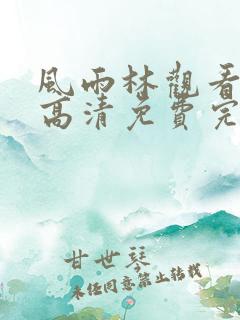 風雨林觀看
高清免費完
甘世琴
未经同意禁止转载